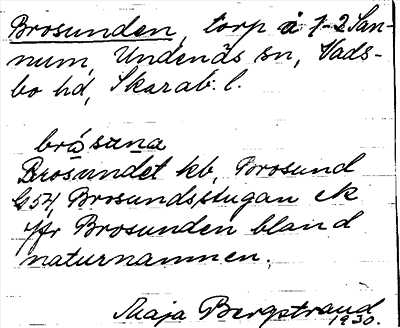 Brosunden, torp å 1-2 San-
num, Undenäs sn, Vads-
bo hd, Skarab. l.
bråsuna
Brosundet kb, Brosund
G54, Brosundsstugan ek
Jfr Brosunden bland
naturnamnen.
Maja Bergstrand
1930.